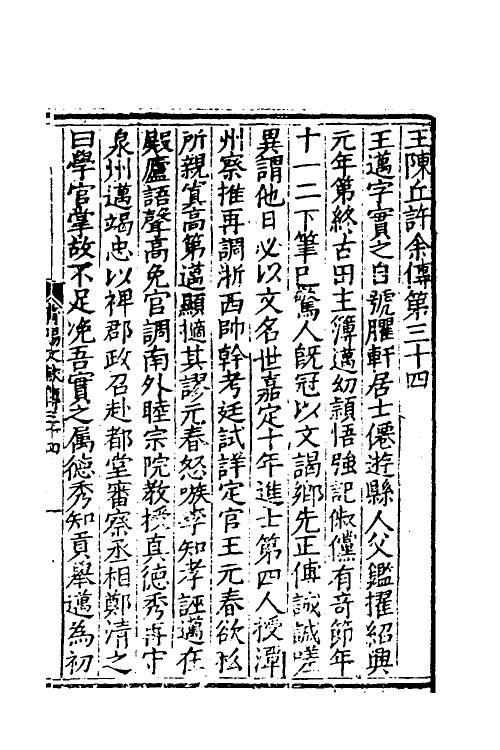 王陳丘許余傳第三十四
王邁字實之自號臞軒居士僊遊縣人父鑑擢紹興
元年第終古田主簿邁幼頴悟強記俶儻有奇節年
十一二下筆已驚人既冠以文謁鄉先正傅誠誠嗟
異謂他日必以文名世嘉定十年進士第四人授潭
州察推再調浙西帥幹考廷試詳定官王元春欲私
所親寘高第邁顯擿其謬元春怒嗾李知孝誣邁在
殿廬語聲高免官調南外睦宗院教授真德秀再守
泉州邁竭忠以裨郡政召赴都堂審察丞相鄭清之
曰學官掌故不足凂吾實之属德秀知貢舉邁為初
莆陽文獻傳三十四